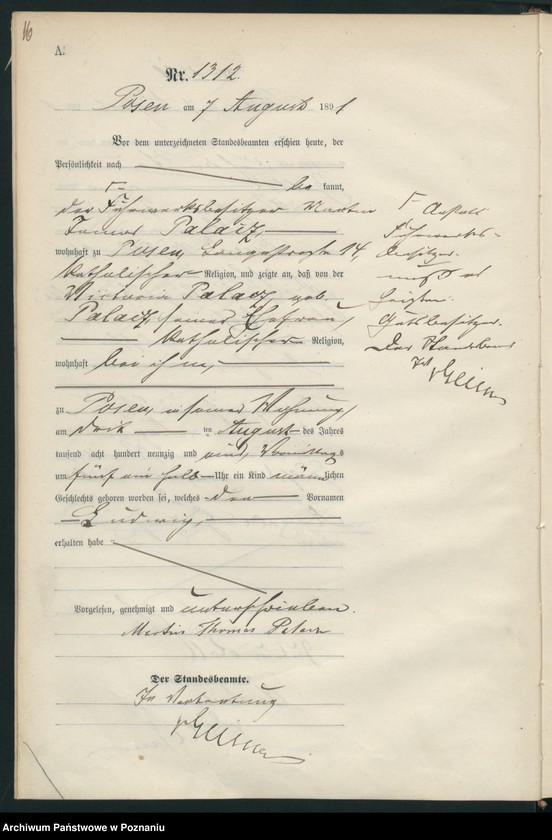 16
A.
Nr. 1312.
Posen am 7 August 1891
Vor dem unterzeichneten Standesbeamten erschien heute, der
Persönlichkeit nach
be kannt,
der Fuhrwerksbesitzer Martin
Palacz
wohnhaft zu Posen, Langestraße 14,
katholischer Religion, und zeigte an, daß von der
Victoria Palacz geb.
Palacz, seiner Ehefrau,
katholischer Religion,
wohnhaft bei ihm,
zu Posen, in seiner Wohnung,
am dritten August des Jahres
tausend acht hundert neunzig und eins, Vormittags
um fünf ein halb Uhr ein Kind männlichen
Geschlechts geboren worden sei, welches den Vornamen
Ludwig,
erhalten habe
Vorgelesen, genehmigt und unterschrieben.
Martin Thomas Palacz
Der Standesbeamte.
In Vertretung
Anstatt
Fuhrwerks-
besitzer
muß es
heißen:
Gutsbesitzer.
Der Standesbeamte
Archiwum Państwowe w Poznaniu